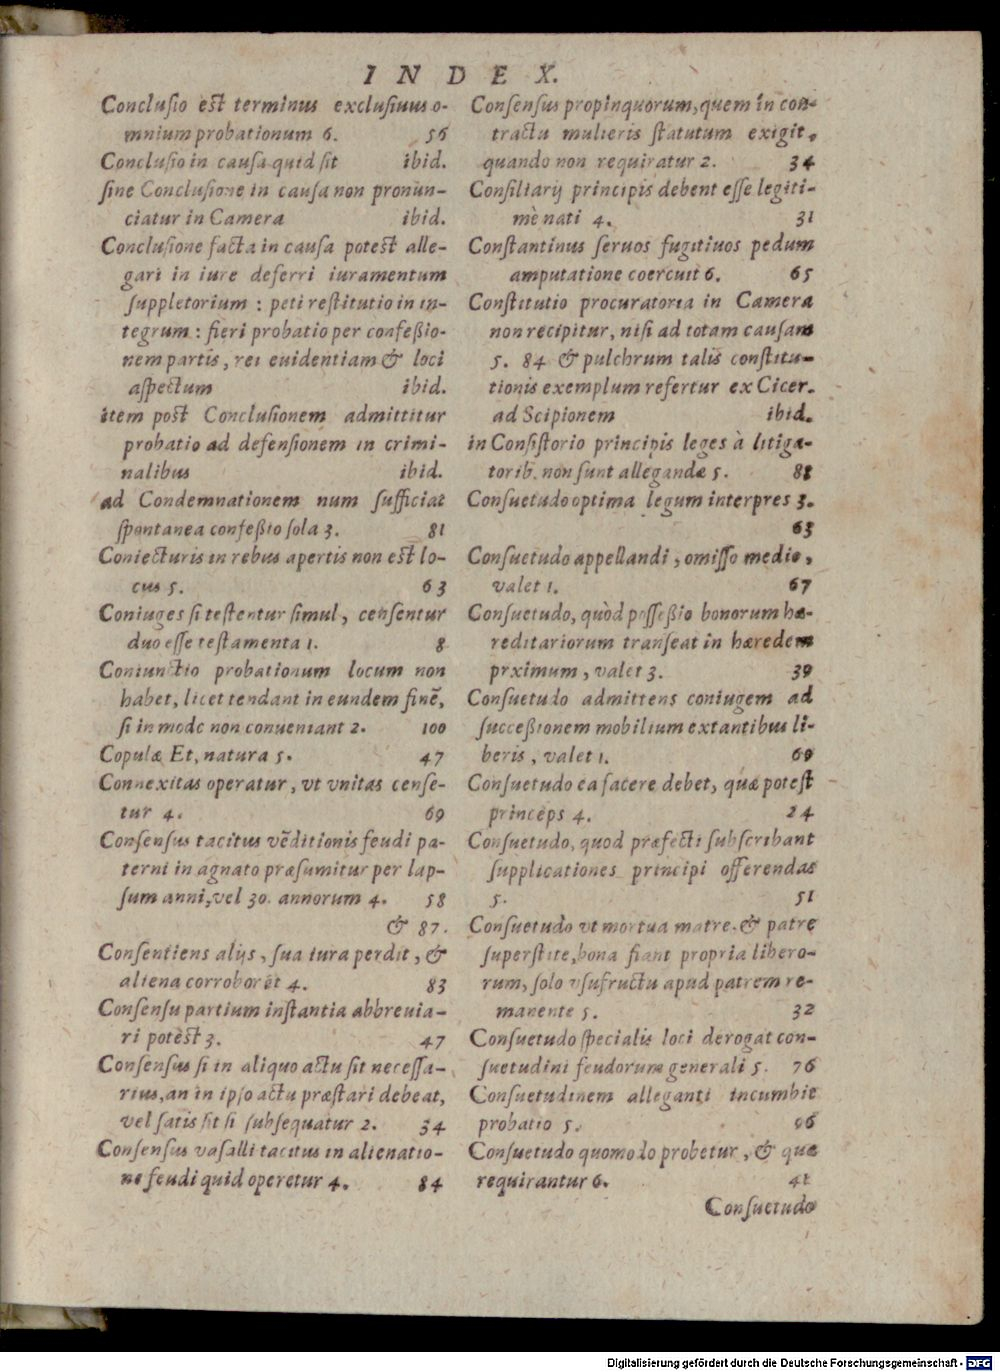 INDEX.
Conclusio est terminus exclusiuus o-
mnium probationum 6. 56
Conclusio in causa quid sit ibid.
sine Conclusione in causa non pronun-
ciatur in Camera ibid.
Conclusione facta in causa potest alle-
gari in iure deferri iuramentum
suppletorium : peti restitutio in in-
tegrum : fieri probatio per confeßio-
nem partis, rei euidentiam & loci
aspectum ibid.
item post Conclusionem admittitur
probatio ad defensionem in crimi-
nalibus ibid.
ad Condemnationem num sufficiat
spontanea confeßio sola 3. 81
Coniecturis in rebus apertis non est lo-
cus 5. 63
Coniuges si testentur simul, censentur
duo esse testamenta 1. 8
Coniunctio probationum locum non
habet, licet tendant in eundem finẽ,
si in modo non conueniant 2. 100
Copulæ Et, natura 5. 47
Connexitas operatur, vt vnitas cense-
tur 4. 69
Consensus tacitus vẽditionis feudi pa-
terni in agnato præsumitur per lap-
sum anni, vel 30. annorum 4. 58
& 87.
Consentiens alijs, sua iura perdit, &
aliena corroborat 4. 83
Consensu partium instantia abbreuia-
ri potest 3. 47
Consensus si in aliquo actu sit necessa-
rius, an in ipso actu præstari debeat,
vel satis sit si subsequatur 2. 34
Consensus vasalli tacitus in alienatio-
ne feudi quid operetur 4. 84
Consensus propinquorum, quem in con-
tractu mulieris statutum exigit,
quando non requiratur 2. 34
Consiliarij principis debent esse legiti-
mè nati 4. 31
Constantinus seruos fugitiuos pedum
amputatione coercuit 6. 65
Constitutio procuratoria in Camera
non recipitur, nisi ad totam causam
5. 84 & pulchrum talis constitu-
tionis exemplum refertur ex Cicer.
ad Scipionem ibid.
in Consistorio principis leges à litiga-
torib. non sunt allegandæ 5. 88
Consuetudo optima legum interpres 3.
63
Consuetudo appellandi, omisso medio,
valet 1. 67
Consuetudo, quòd possessio bonorum hæ-
reditariorum transeat in hæredem
prximum, valet 3. 39
Consuetudo admittens coniugem ad
succeßionem mobilium extantibus li-
beris, valet 1. 60
Consuetudo ea facere debet, quæ potest
princeps 4. 24
Consuetudo, quod præfecti subscribant
supplicationes principi offerendas
5. 51
Consuetudo vt mortua matre, & patre
superstite, bona fiant propria libero-
rum, solo vsufructu apud patrem re-
manente 5. 32
Consuetudo specialis loci derogat con-
suetudini feudorum generali 5. 76
Consuetudinem alleganti incumbit
probatio 5. 66
Consuetudo quomodo probetur, & quæ
requirantur 6. 41
Consuetudo
Digitalisierung gefördert durch die Deutsche Forschungsgemeinschaft - DFG